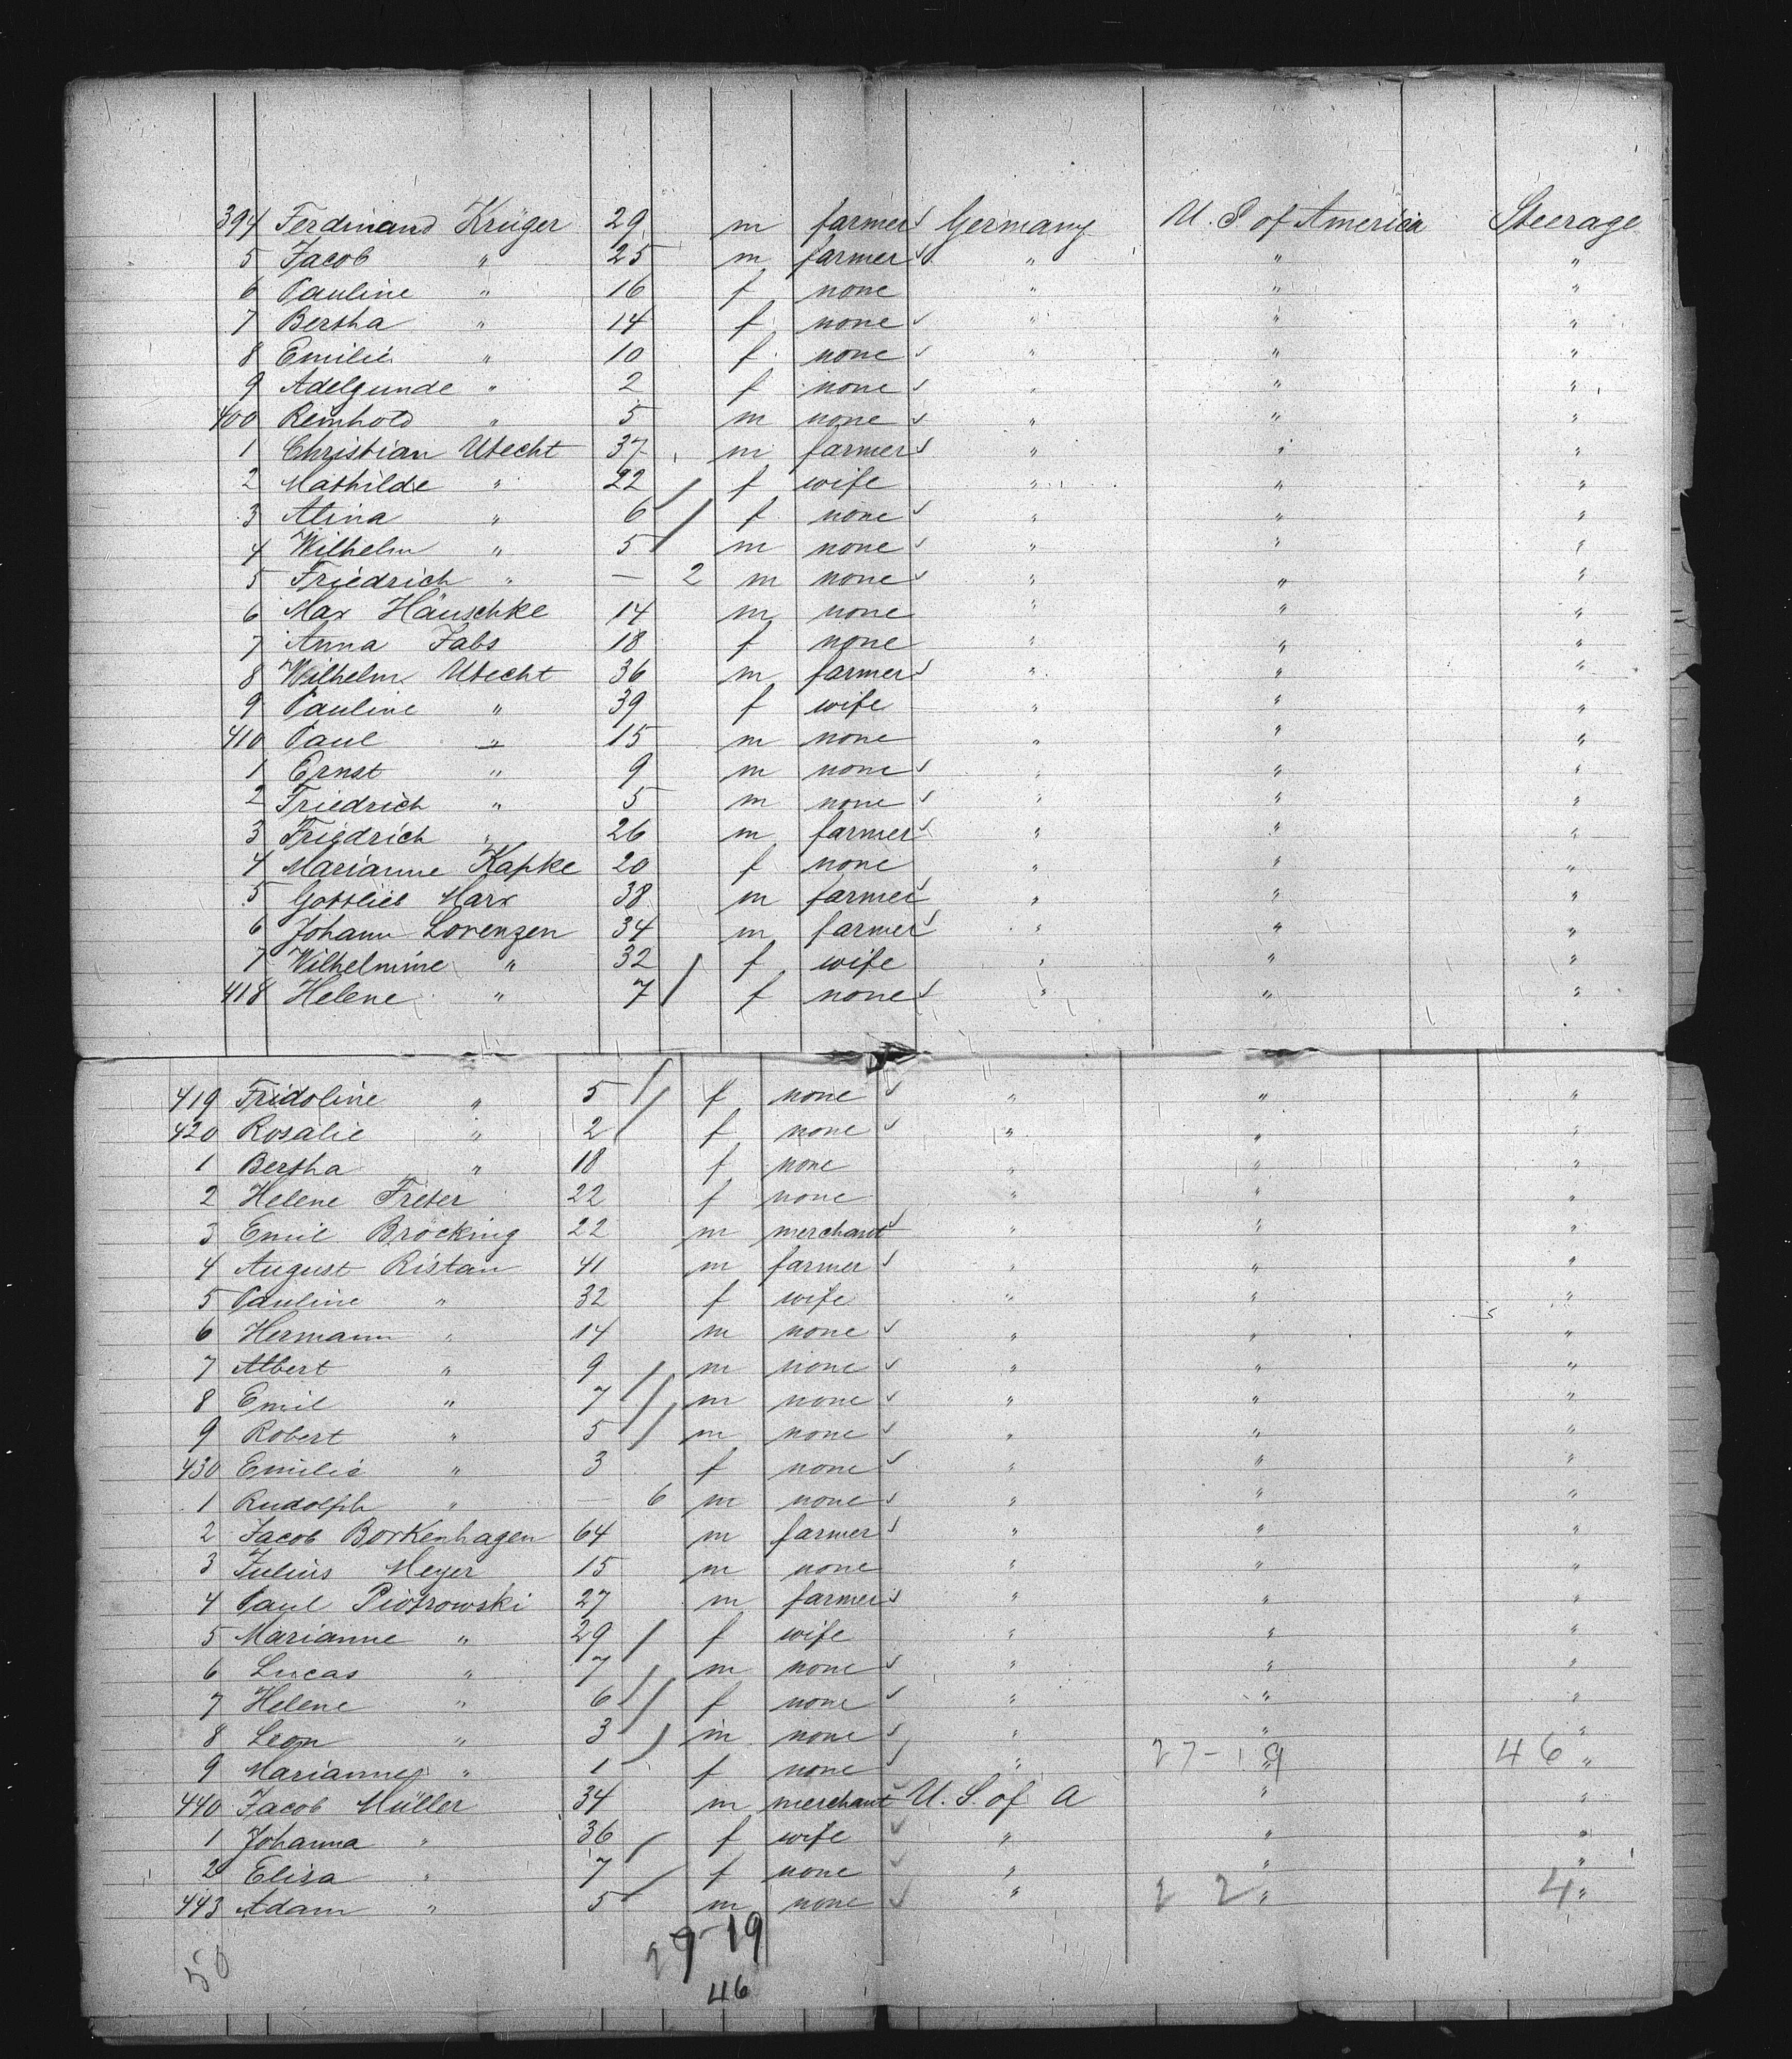 394 Ferdinand Krüger 29 m farmer Germany U. S of America Steerage
5 Jacob " 25 m farmer " " "
6 Pauline " 16 f none " " "
7 Bertha " 14 f none " " "
8 Emilie " 10 f none " " "
9 Adelgunde " 2 f none " " "
400 Reinhold " 5 m none " " "
1 Christian Utecht 37 m farmer " " "
2 Mathilde " 22 f wife " " "
3 Alina " 6 f none " " "
4 Wilhelm " 5 m none " " "
5 Friedrich " — 2 m none " " "
6 Max Häuschke 14 m none " " "
7 Anna Jabs 18 f none " " "
8 Wilhelm Utecht 36 m farmer " " "
9 Pauline " 39 f wife " " "
410 Paul " 15 m none " " "
1 Ernst " 9 m none " " "
2 Friedrich " 5 m none " " "
3 Friedrich " 26 m farmer " " "
4 Marianne Kapke 20 f none " " "
5 Gottlieb Marx 38 m farmer " " "
6 Johann Lorenzen 34 m farmer " " "
7 Wilhelmine " 32 f wife " " "
418 Helene " 7 f none " " "
419 Fridoline " 5 f none " " "
420 Rosalie " 2 f none " " "
1 Bertha " 18 f none " " "
2 Helene Freter 22 f none " " "
3 Emil Brocking 22 m merchant " " "
4 August Ristau 41 m farmer " " "
5 Pauline " 32 f wife " " "
6 Hermann " 14 m none " " "
7 Albert " 9 m none " " "
8 Emil " 7 m none " " "
9 Robert " 5 m none " " "
430 Emilie " 3 f none " " "
1 Rudolph " — 6 m none " " "
2 Jacob Borkenhagen 64 m farmer " " "
3 Julius Meyer 15 m none " " "
4 Paul Piotrowski 27 m farmer " " "
5 Marianne " 29 f wife " " "
6 Lucas " 7 m none " " "
7 Helene " 6 f none " " "
8 Leon " 3 m none " " "
9 Marianne " 1 f none " 27-19 " 46 "
440 Jacob Müller 34 m merchant U. S. of A " "
1 Johanna " 36 f wife " " "
2 Elisa " 7 f none " " "
443 Adam " 5 m none " 2 2 " 4 "
50 27-19
46